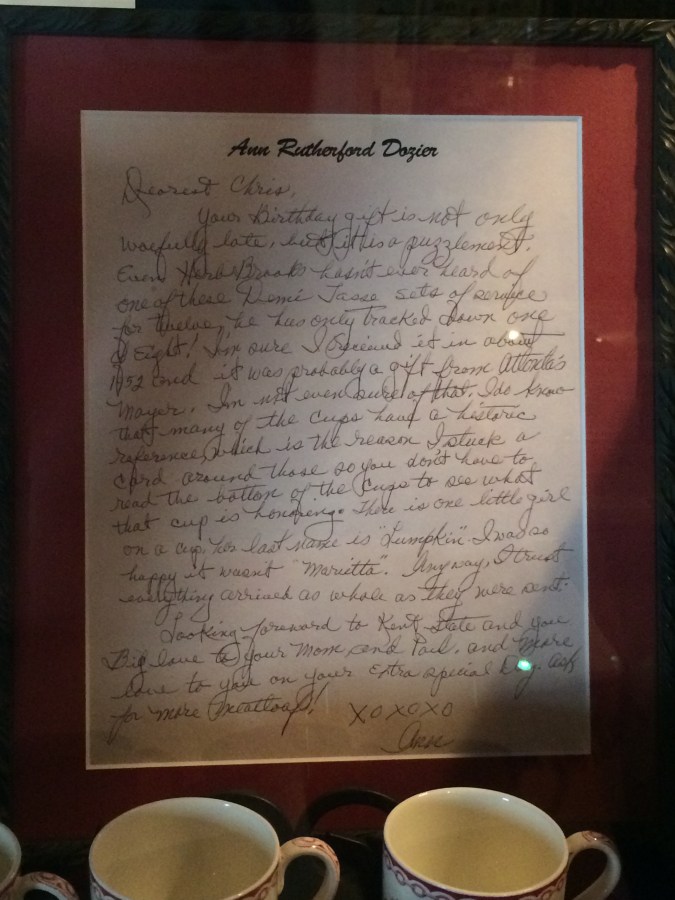 Ann Rutherford Dozier
Dearest Chris,
Your Birthday gift is not only
woefully late, but it is a puzzlement.
Even Herb Brooks hasn't ever heard of
one of these Demi Tasse sets of service
for twelve, he has only tracked down one
of Eight! I'm sure I received it in about
1952 and it was probably a gift from Atlanta's
Mayor. I'm not even sure of that. I do know
that many of the cups have a historic
reference, which is the reason I stuck a
card around those so you don't have to
read the bottom of the cups to see what
that cup is honoring. There is one little girl
on a cup, her last name is "Lumpkin". I was so
happy it wasn't "Marietta". Anyway, I trust
everything arrived as whole as they were sent.
Looking foreward to Kent State and you
Big love to your Mom and Paul, and more
love to you on your Extra special Day. Ask
for more Meatloaf!
XOXOXO
Anne